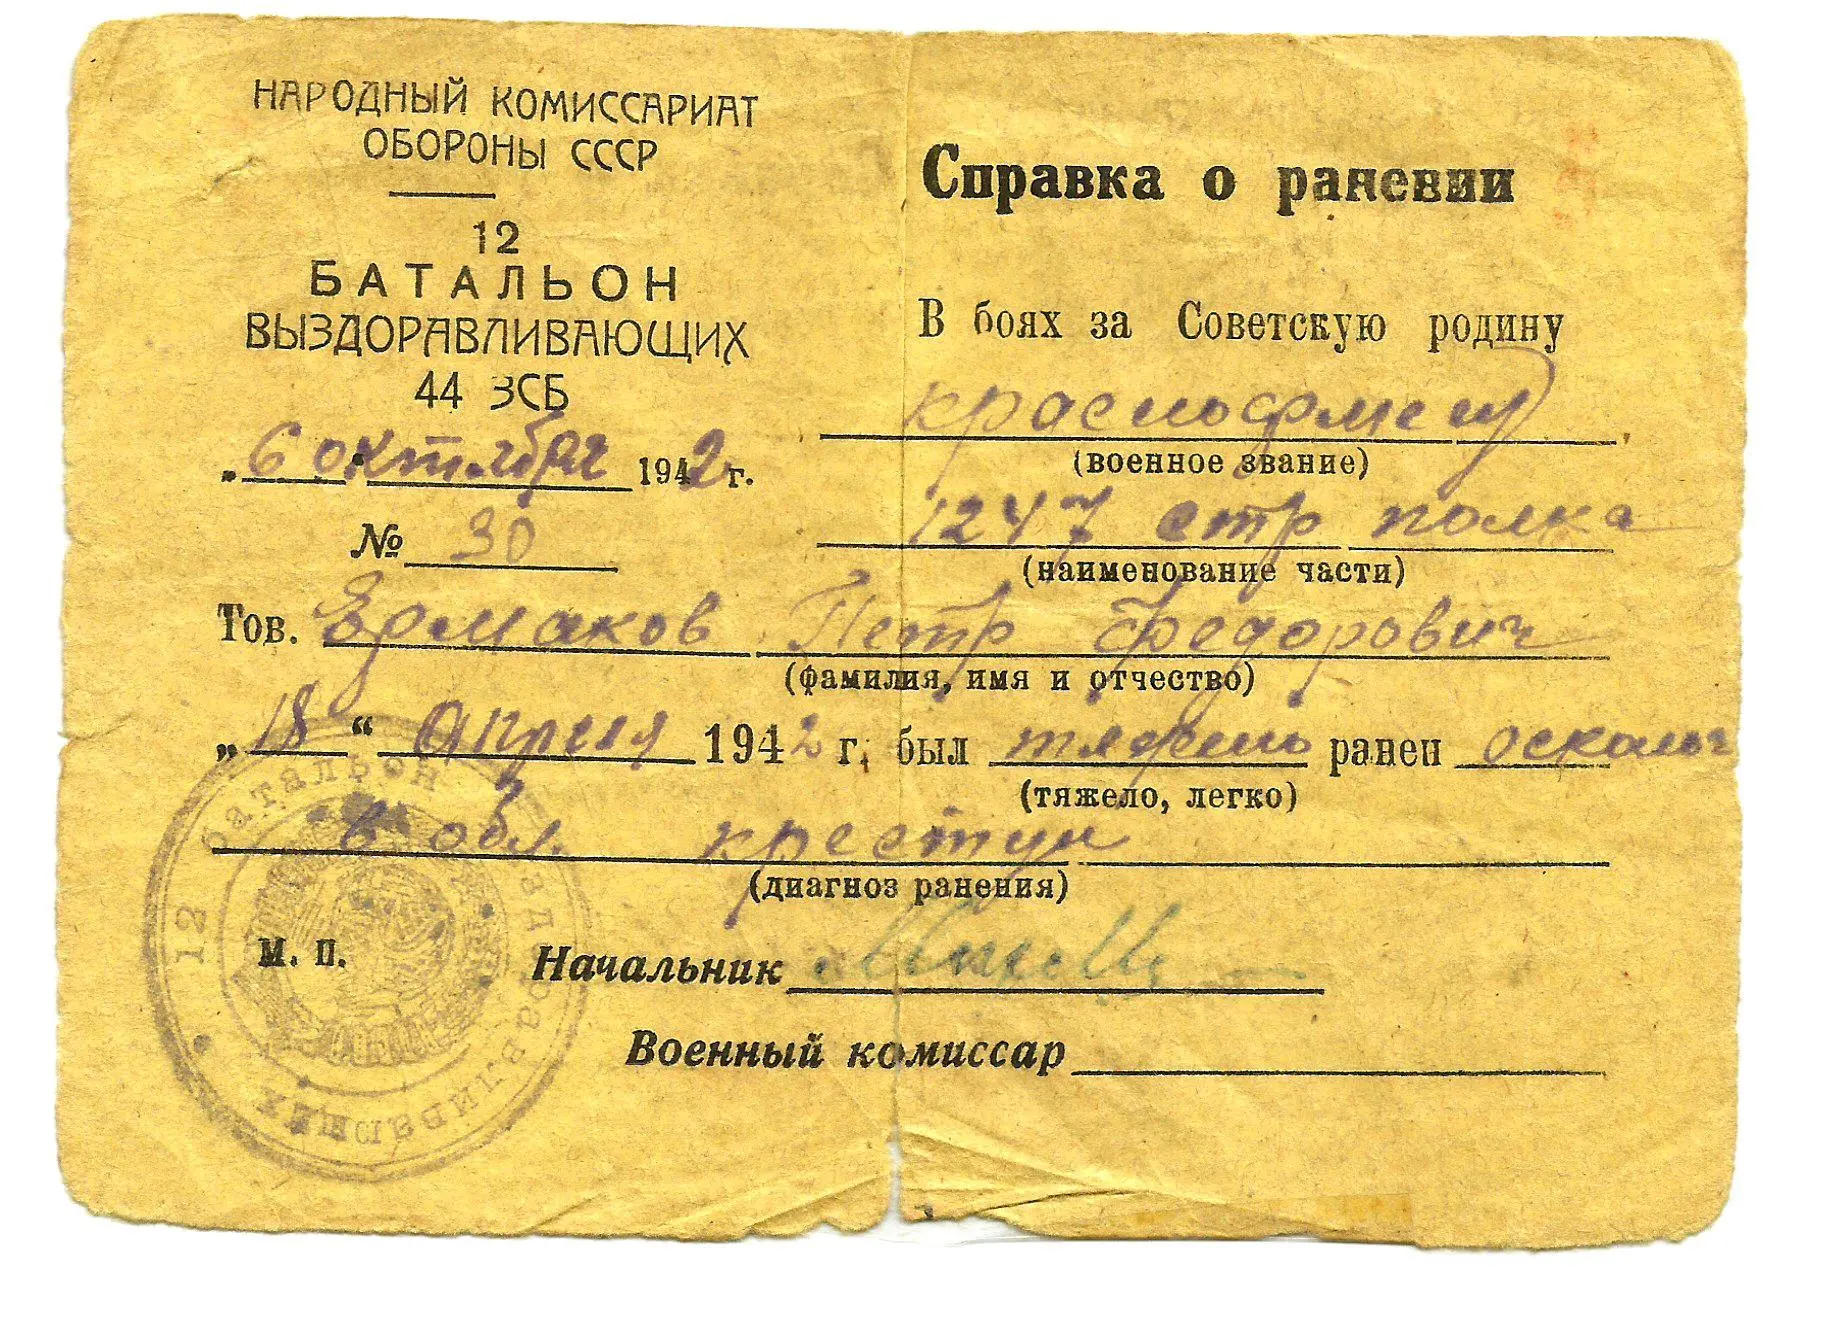 НАРОДНЫЙ КОМИССАРИАТ
ОБОРОНЫ СССР
12
БАТАЛЬОН
ВЫЗДОРАВЛИВАЮЩИХ
44 ЗСБ
„6 октября 1942 г.
№ 30
Справка о ранении
В боях за Советскую родину
красноармеец
(военное звание)
1247 стр полка
(наименование части)
Тов. Ермаков Петр Федорович
(фамилия, имя и отчество)
„18“ апреля 1942 г. был тяжело ранен
(тяжело, легко)
в обл.
(диагноз ранения)
М. П.
Начальник
Военный комиссар
12 батальон выздоравливающих